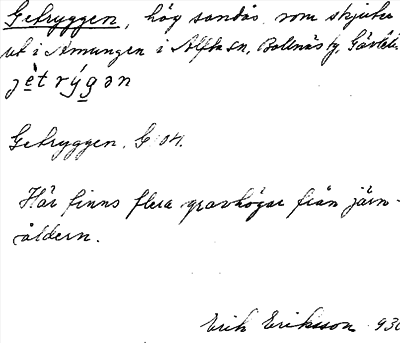 Getryggen, hög sandås som skjuter
ut i Amungen i Alfta sn, Bollnäs tg, Gävleb.
jèt rýgən
Getryggen. G 04.
Här finns flera gravhögar från järn-
åldern.
Erik Eriksson 930